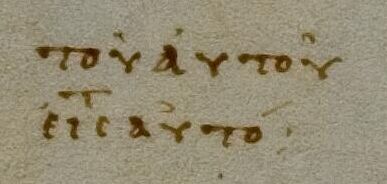 τοῦ αὐτοῦ
εἰς αὐτό